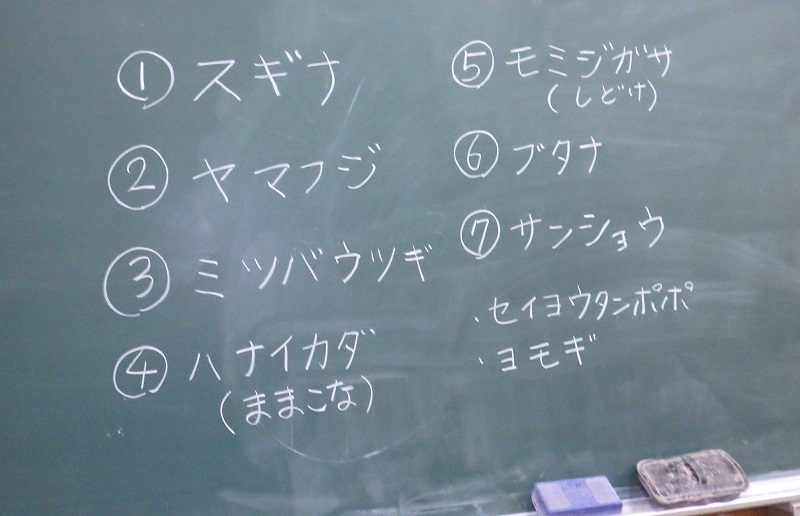 ① スギナ
② ヤマフジ
③ ミツバウツギ
④ ハナイカダ
(ままこな)
⑤ モミジガサ
(しどけ)
⑥ ブタナ
⑦ サンショウ
・セイヨウタンポポ
・ヨモギ